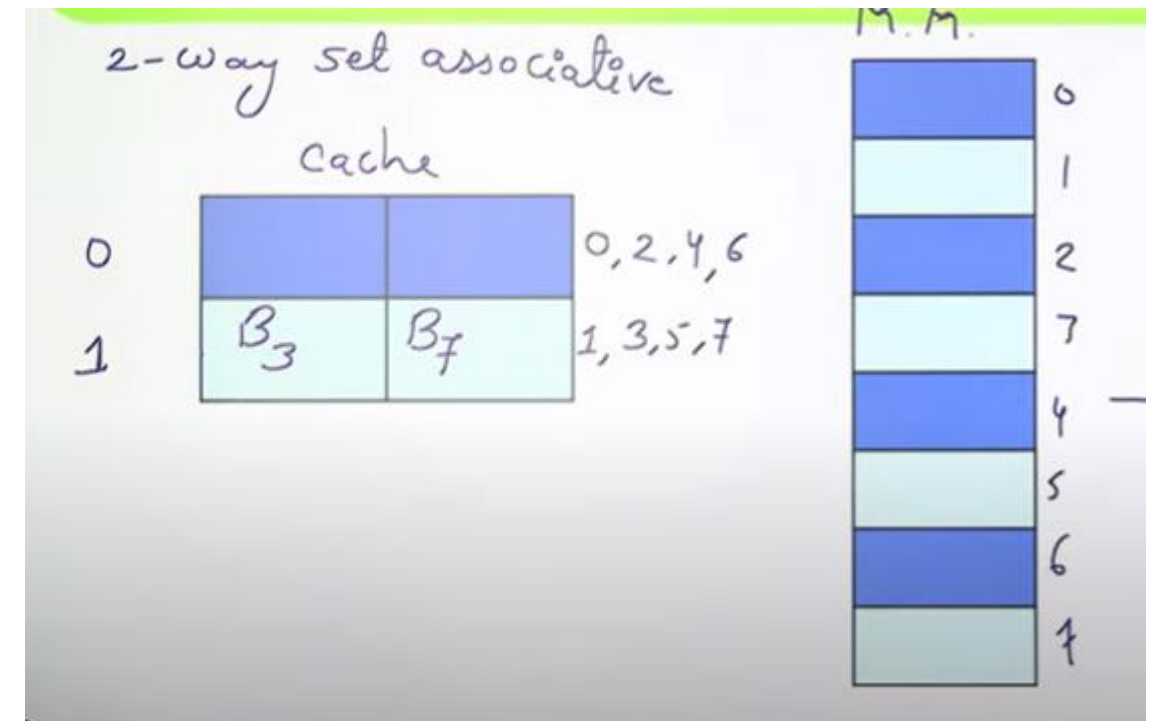 2-way set associative
M.M.
Cache
0
0, 2, 4, 6
1
B3
B7
1, 3, 5, 7
0
1
2
3
4
5
6
7